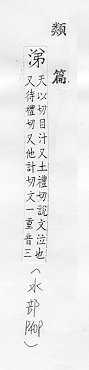 類篇
涕
天以切目汁又土禮切說文泣也
又待禮切又他計切文一重音三
(水部
P40P)